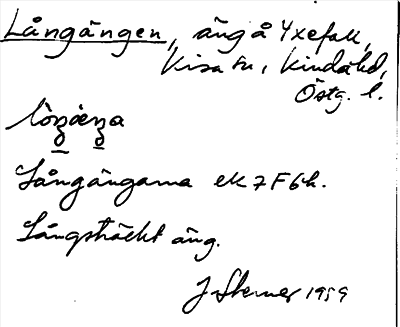 Långängen, äng å Yxefall,
Kisa sn, Kinda hd,
Östg. l.
Långängarna ek 7F6h.
Långsträckt äng.
J. Sterner 1959